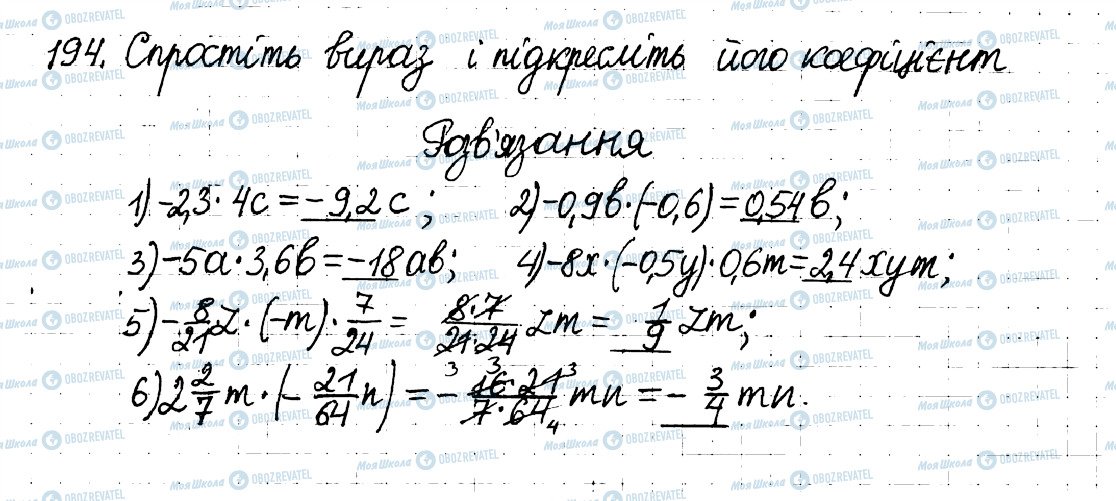 194. Спростіть вираз і підкресліть його коефіцієнт
Розв'язання
1) -2,3 · 4c = -9,2c; 2) -0,9b · (-0,6) = 0,54b;
3) -5a · 3,6b = -18ab; 4) -8x · (-0,5y) · 0,6m = 2,4xym;
5) -8/21 z · (-m) · 7/24 = 8·7/21·24 zm = 1/9 zm;
6) 2 2/7 m · (-21/64 n) = - 16·21/7·64 mn = - 3/4 mn.